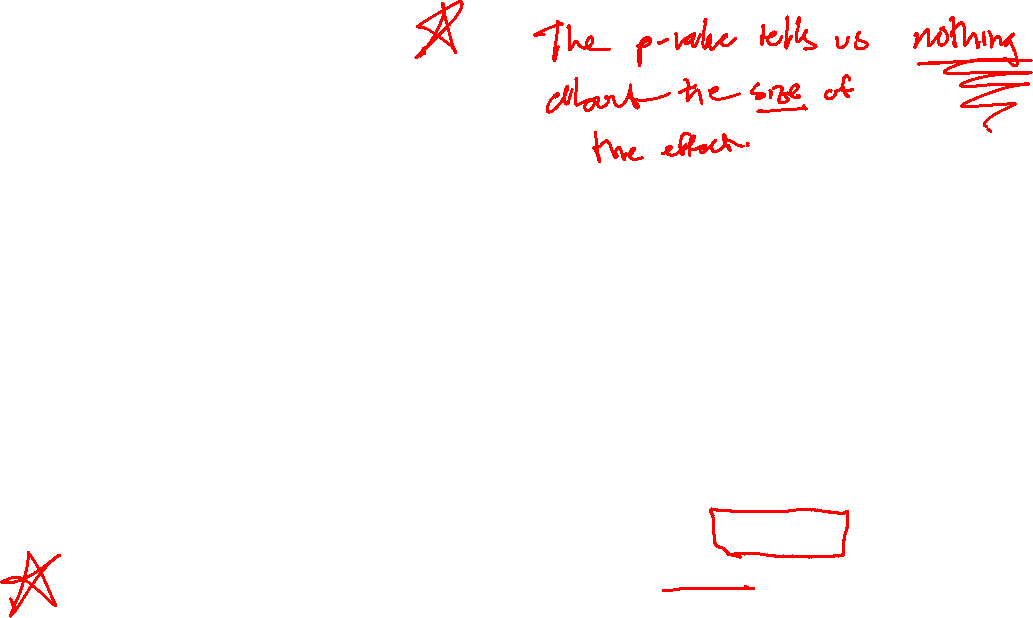 The p-value tells us nothing
about the size of
the effect.